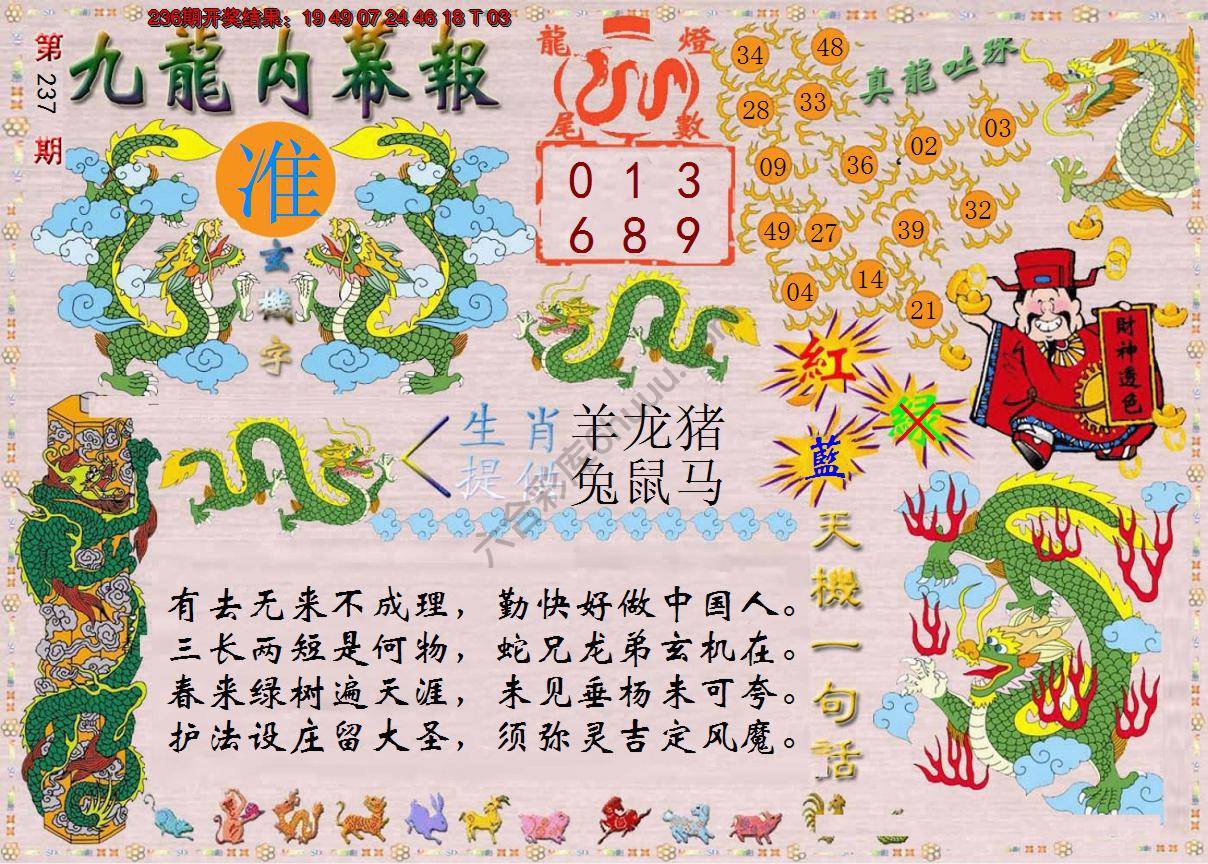 236期开奖结果：19 49 07 24 46 18 T 03
第237期
九龍内幕報
准
玄機字
龍燈
尾數
0 1 3
6 8 9
真龍吐珠
34
48
28
33
03
02
09
36
32
49
27
39
14
04
21
財神透色
紅
绿
藍
生肖
提供
羊龙猪
兔鼠马
天機一句话
有去无来不成理，勤快好做中国人。
三长两短是何物，蛇兄龙弟玄机在。
春来绿树遍天涯，未见垂杨未可夸。
护法设庄留大圣，须弥灵吉定风魔。